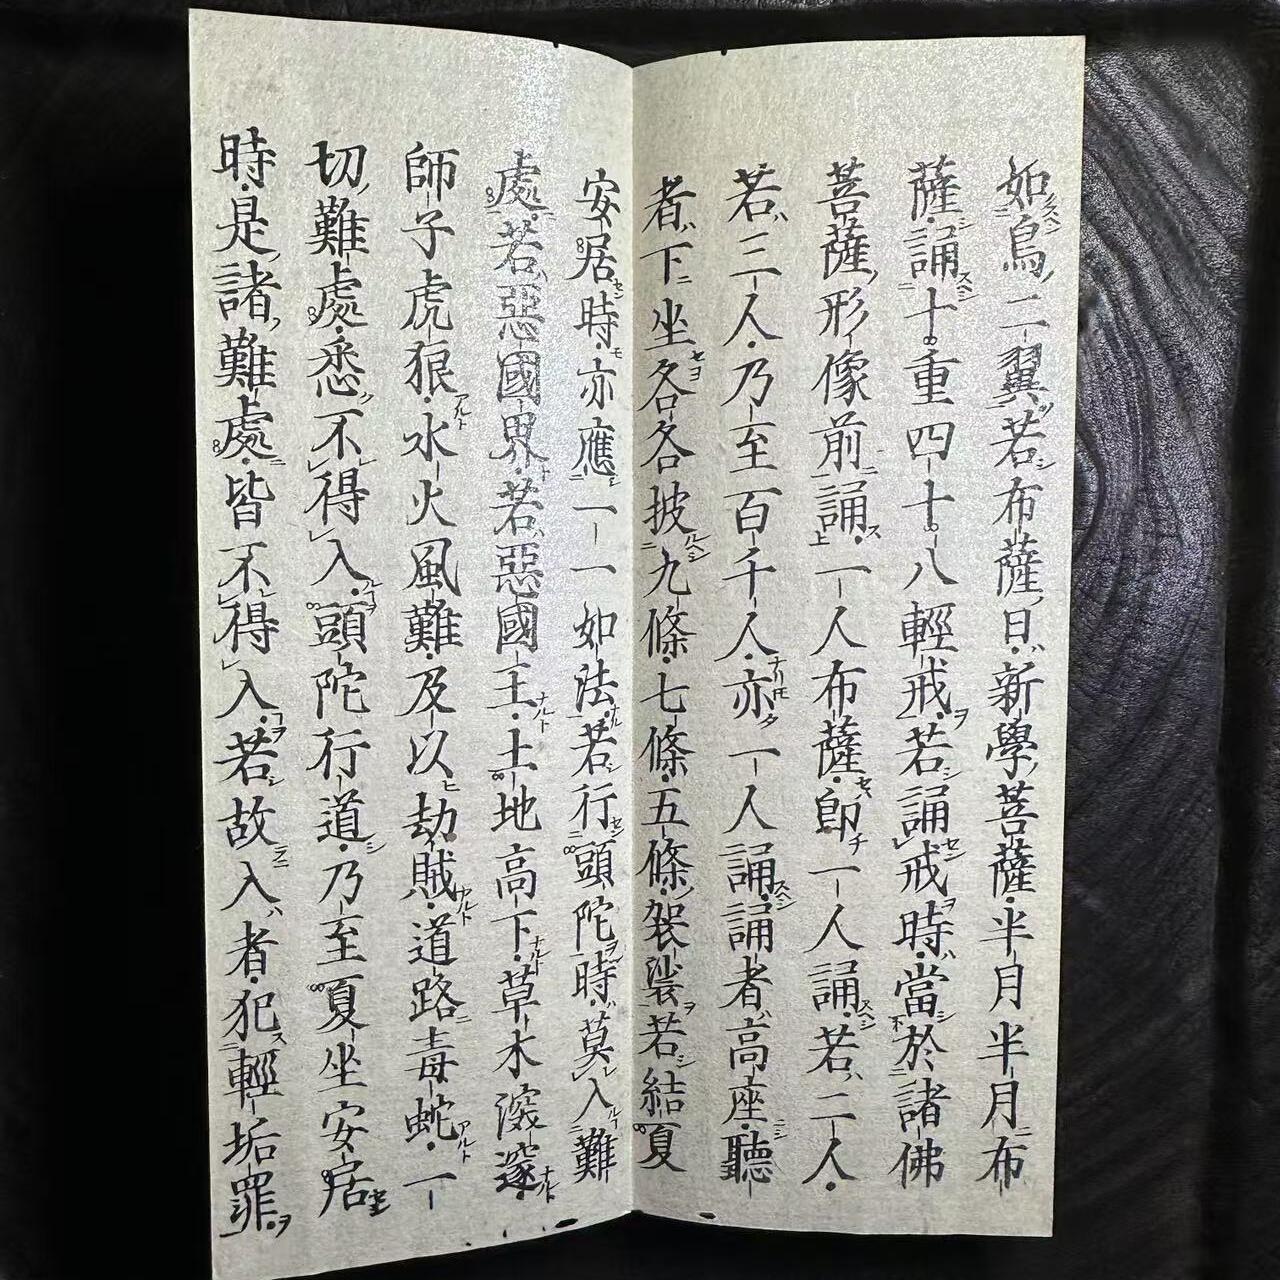 如鳥二翼若布薩日新學菩薩半月半月布
薩誦十重四十八輕戒若誦戒時當於諸佛
菩薩形像前誦一人布薩即一人誦若二人
若三人乃至百千人亦一人誦誦者高座聽
者下坐各各披九條七條五條袈裟若結夏
安居時亦應一一如法若行頭陀時莫入難
處若惡國界若惡國王土地高下草木深邃
師子虎狼水火風難及以劫賊道路毒蛇一
切難處悉不得入頭陀行道乃至夏坐安居
時是諸難處皆不得入若故入者犯輕垢罪